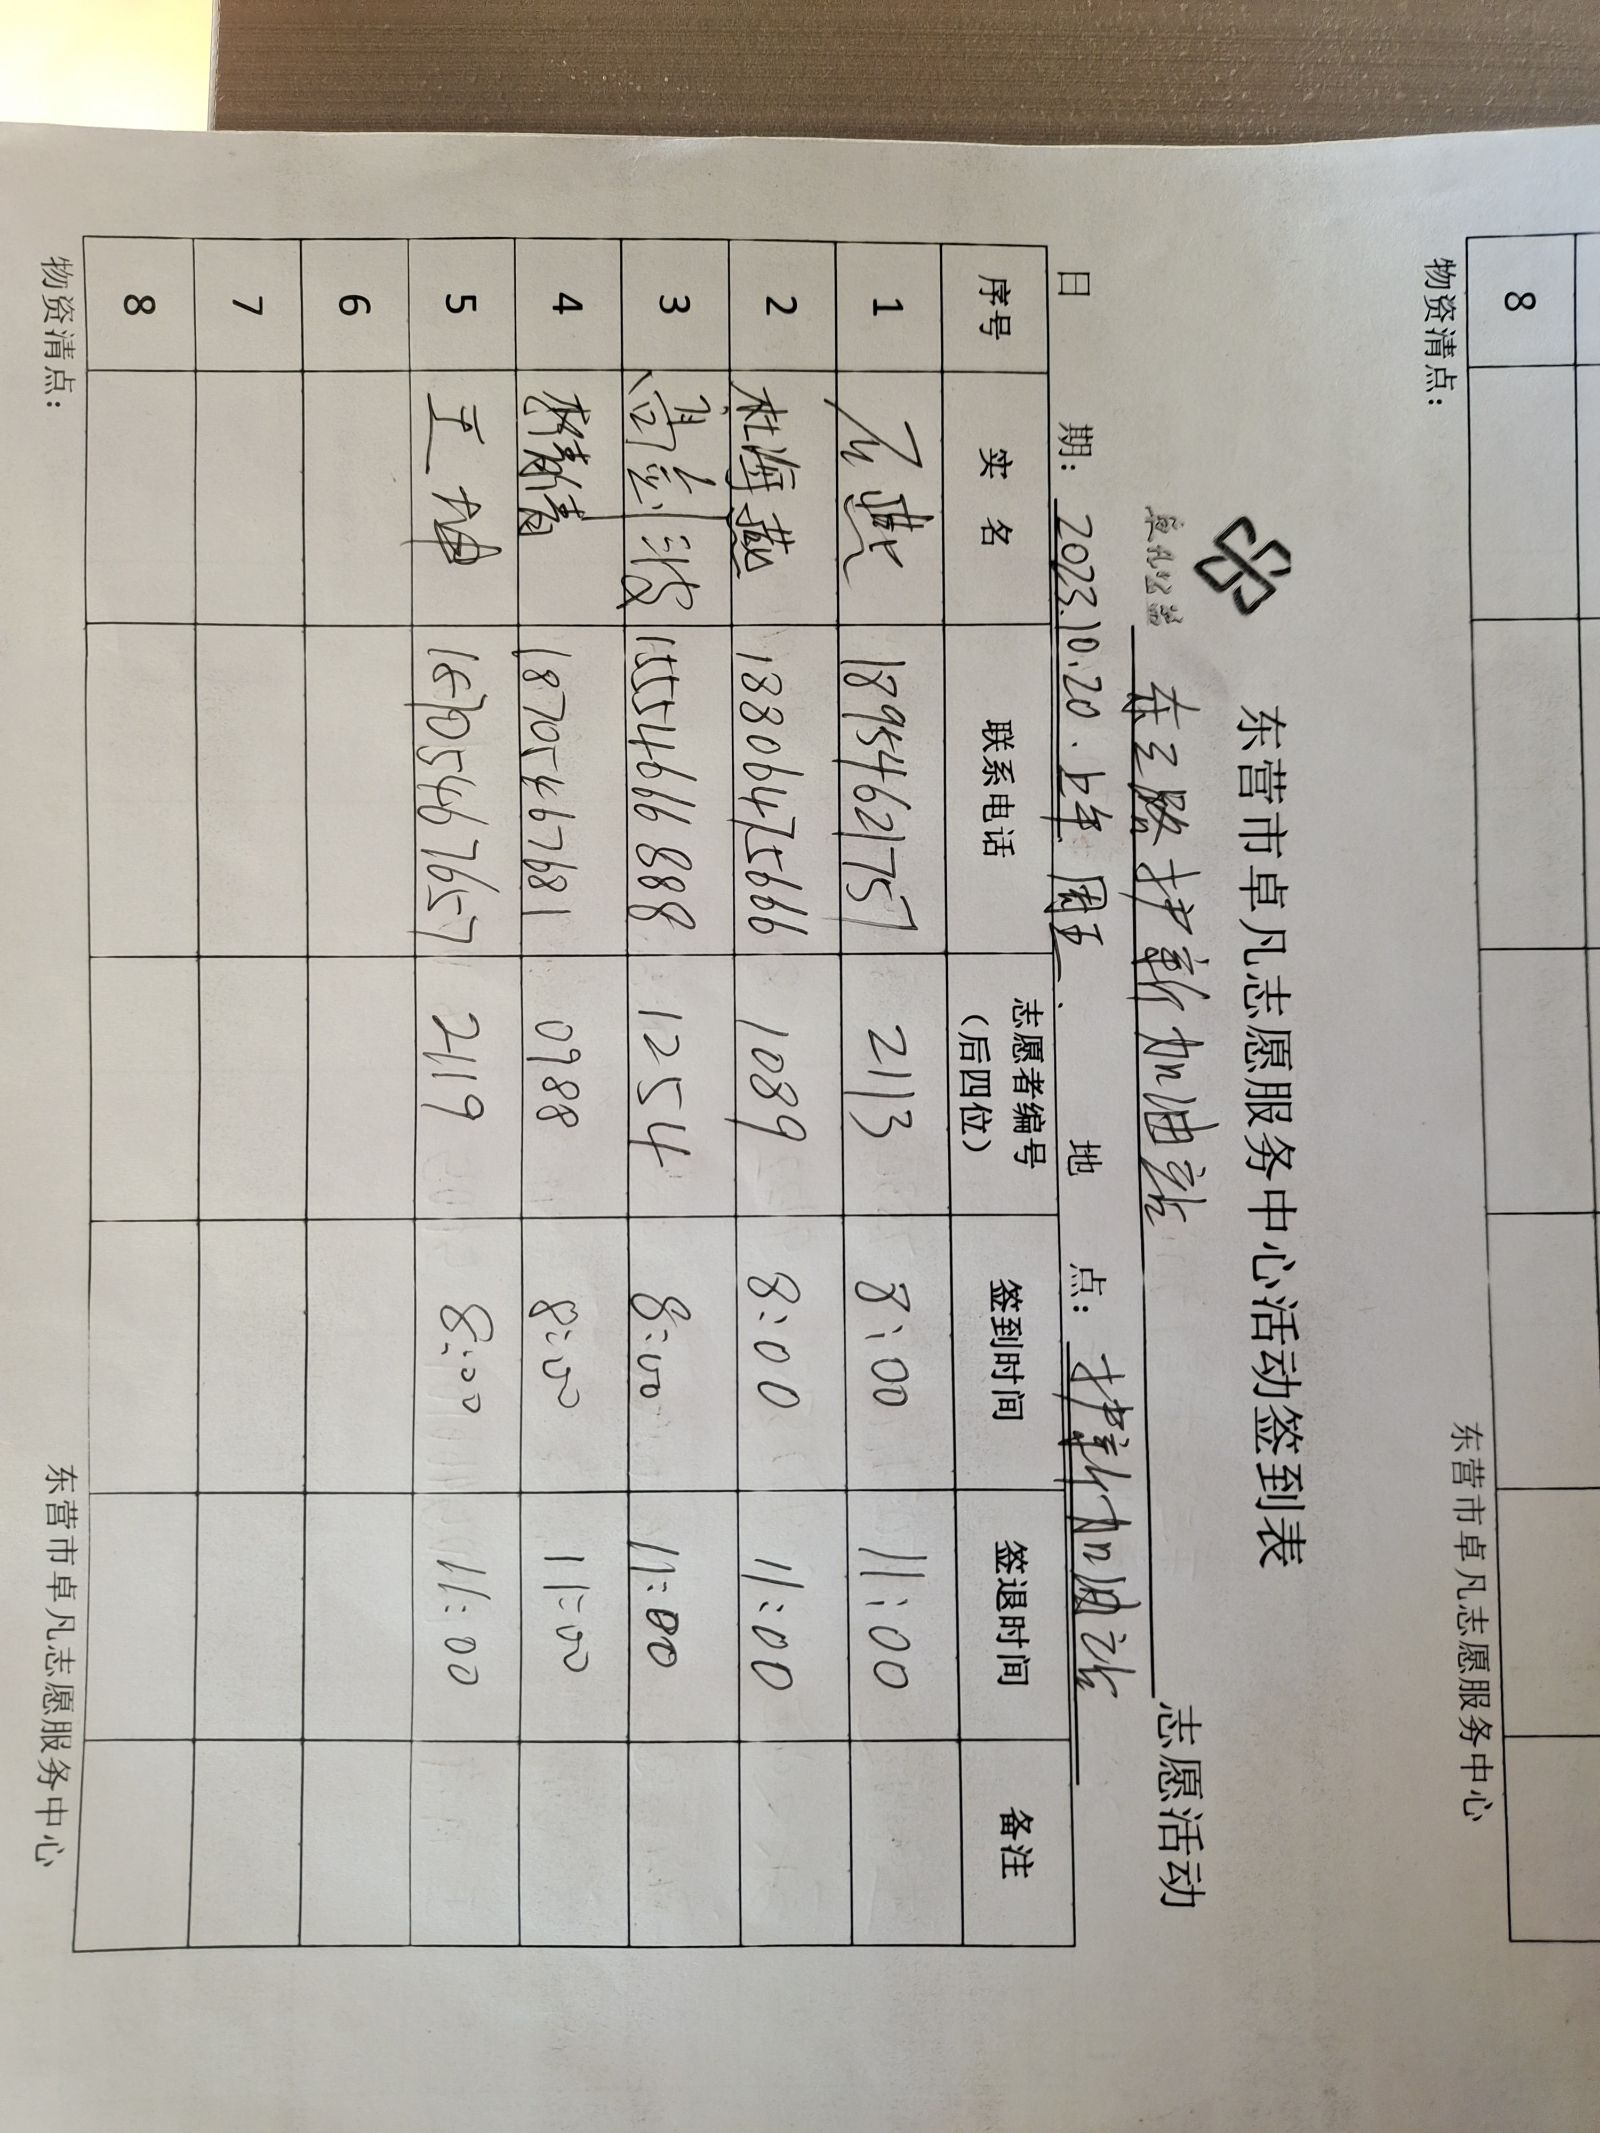 8
物资清点：
东营市卓凡志愿服务中心
东营市卓凡志愿服务中心活动签到表
卓凡公益
东三路护新加油站 志愿活动
日 期：2023.10.20.上午 周五. 地 点：护新加油站
序号 实 名 联系电话 志愿者编号（后四位） 签到时间 签退时间 备注
1 燕 18954621757 2113 8:00 11:00
2 杜海燕 18806475666 1089 8:00 11:00
3 15554666888 1254 8:00 11:00
4 18705467681 0988 8:00 11:00
5 王 18705467657 2119 8:00 11:00
6
7
8
物资清点：
东营市卓凡志愿服务中心